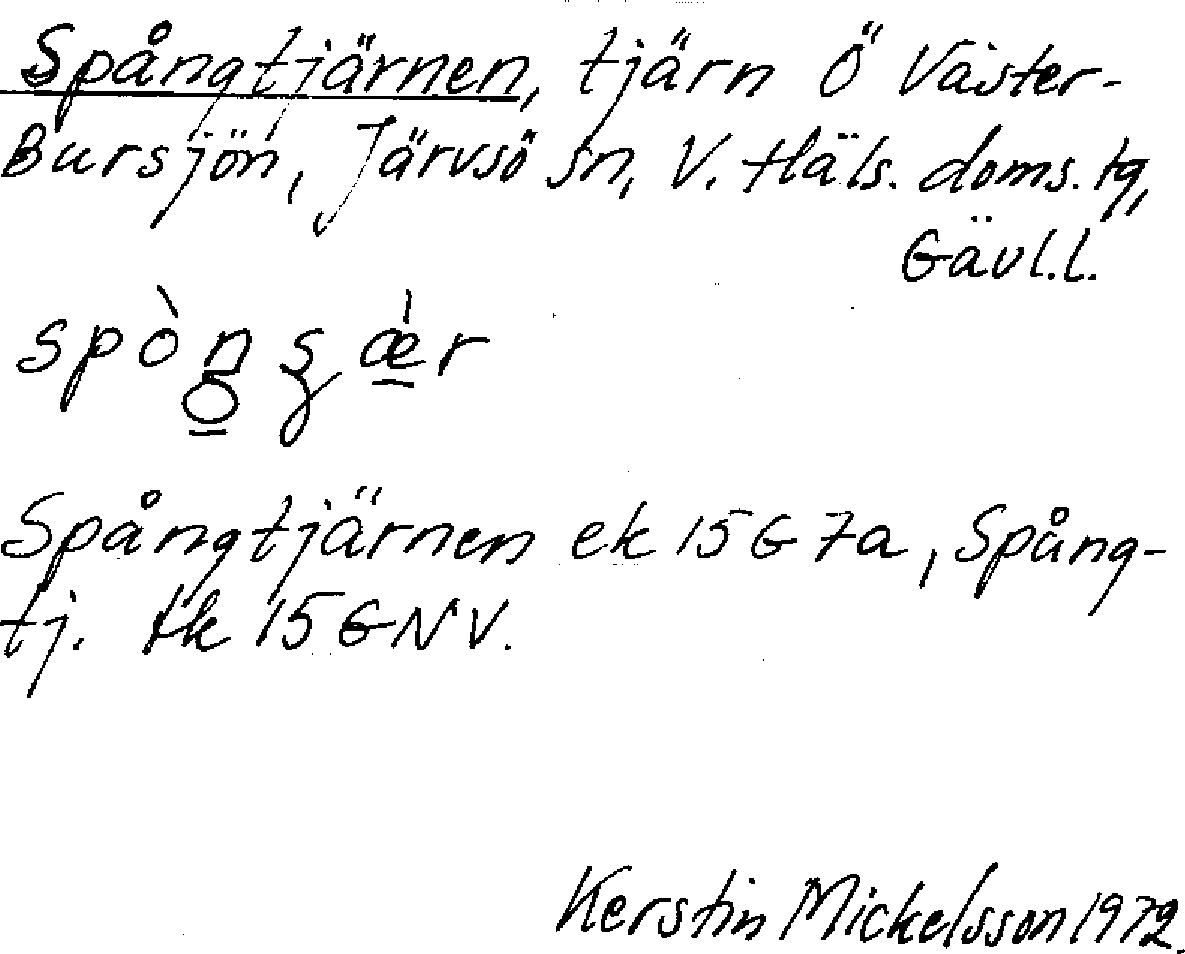 Spångtjärnen, tjärn Ö Väster-
Bursjön, Järvsö sn, V. Häls. doms.tg,
Gävl.l.
Spångtjärnen ek 15G7a, Spång-
tj. tk 15GNV.
Kerstin Mickelsson 1972.